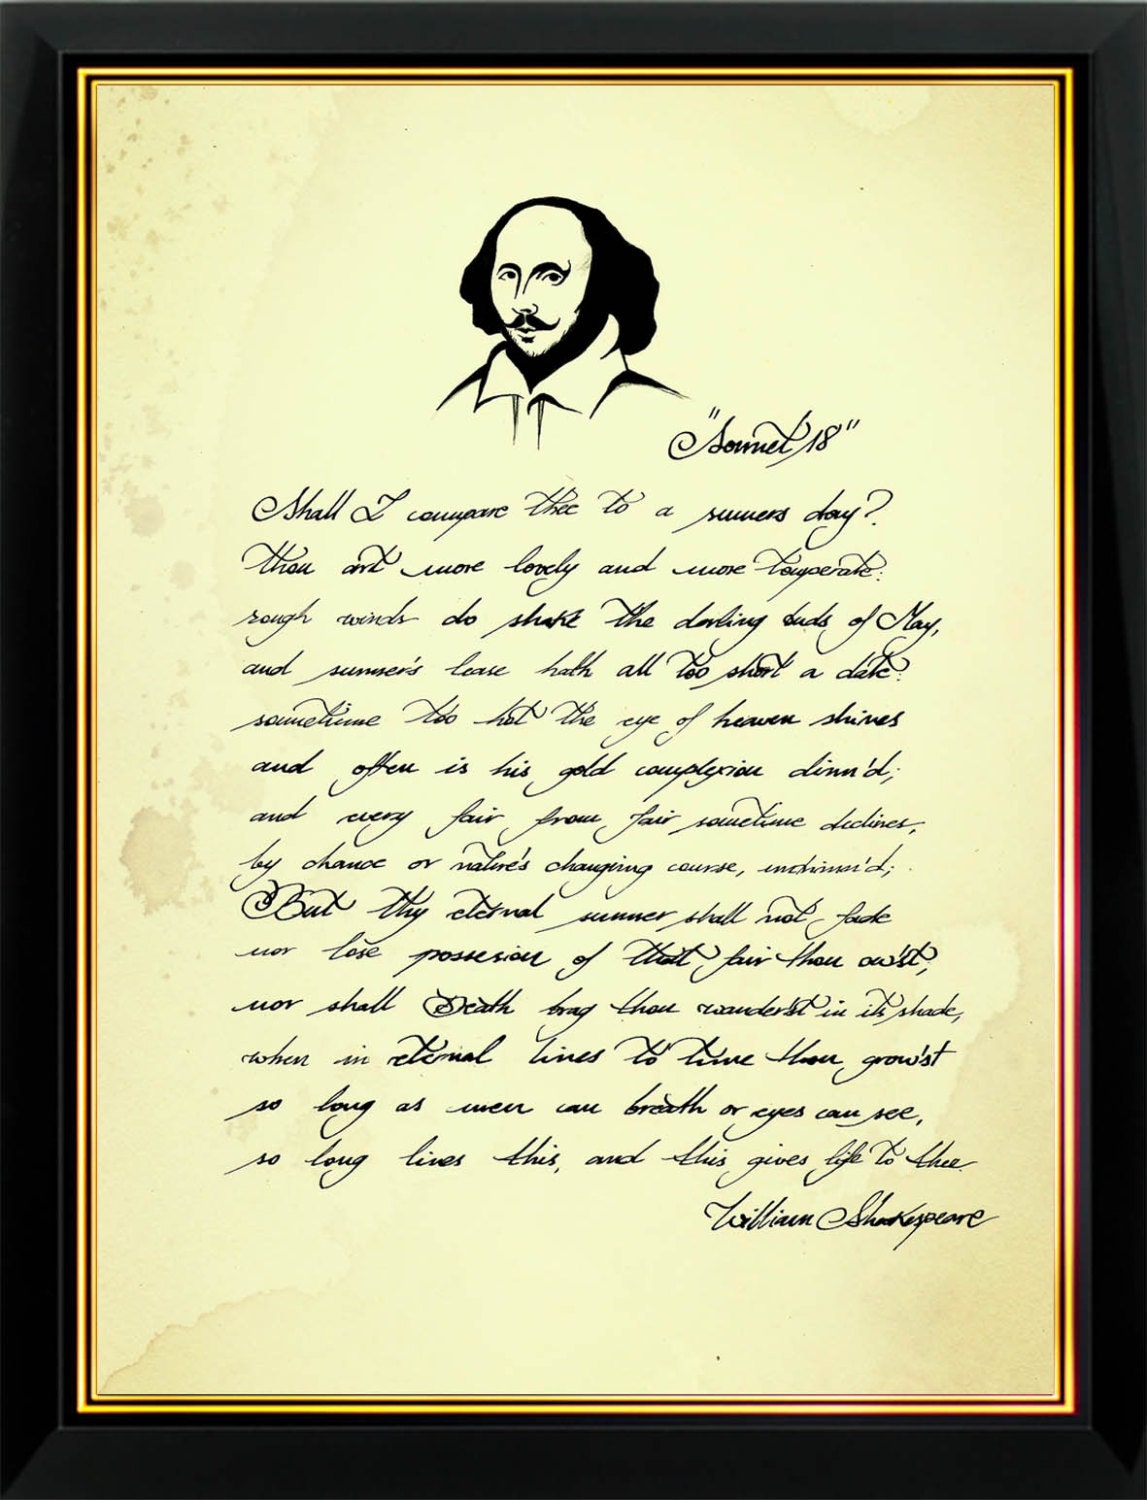 "Sonnet 18"
Shall I compare thee to a summers day?
Thou art more lovely and more temperate:
rough winds do shake the darling buds of May,
and summer's lease hath all too short a date:
sometime too hot the eye of heaven shines
and often is his gold complexion dimm'd;
and every fair from fair sometime declines,
by chance or nature's changing course, untrimm'd;
But thy eternal summer shall not fade
nor lose possesion of that fair thou ow'st;
nor shall Death brag thou wander'st in its shade,
when in eternal lines to time thou grow'st
so long as men can breath or eyes can see,
so long lives this, and this gives life to thee.
William Shakespeare